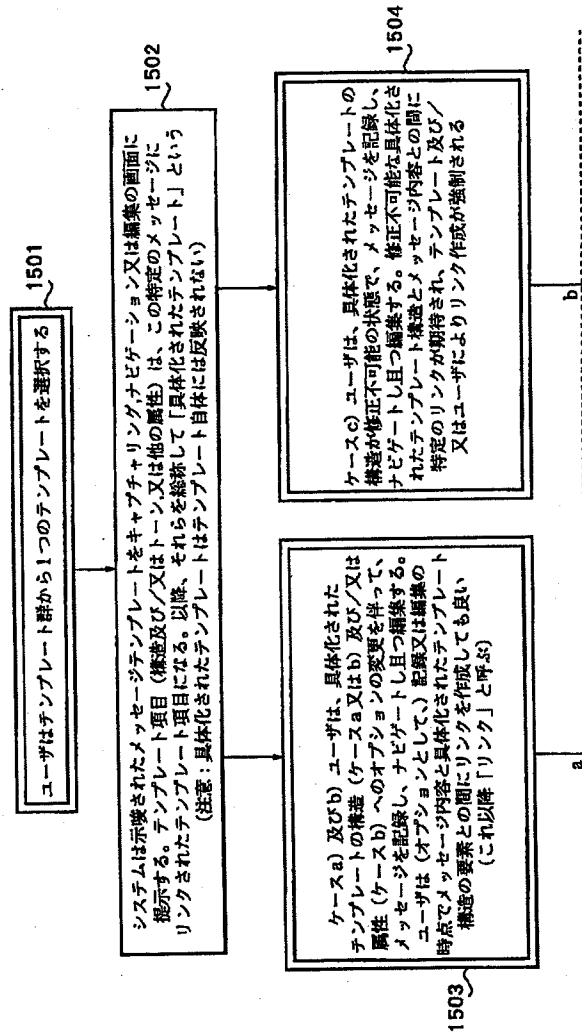 1501
ユーザはテンプレート群から1つのテンプレートを選択する
1502
システムは示唆されたメッセージテンプレートをキャプチャリング,ナビゲーション又は編集の画面に
提示する。テンプレート項目（構造及び／又はトーン,又は他の属性）は、この特定のメッセージに
リンクされたテンプレート項目になる。以降、それらを総称して「具体化されたテンプレート」という
（注意：具体化されたテンプレートはテンプレート自体には反映されない）
1503
ケースa）及びb）ユーザは、具体化された
テンプレートの構造（ケースa又はb）及び／又は
属性（ケースb）へのオプションの変更を伴って、
メッセージを記録し、ナビゲートし且つ編集する。
ユーザは（オプションとして、）記録又は編集の
時点でメッセージ内容と具体化されたテンプレート
構造の要素との間にリンクを作成しても良い
（これ以降「リンク」と呼ぶ）
a
1504
ケースc）ユーザは、具体化されたテンプレートの
構造が修正不可能の状態で、メッセージを記録し、
ナビゲートし且つ編集する。修正不可能な具体化さ
れたテンプレート構造とメッセージ内容との間に
特定のリンクが期待され、テンプレート及び／
又はユーザによりリンク作成が強制される
b